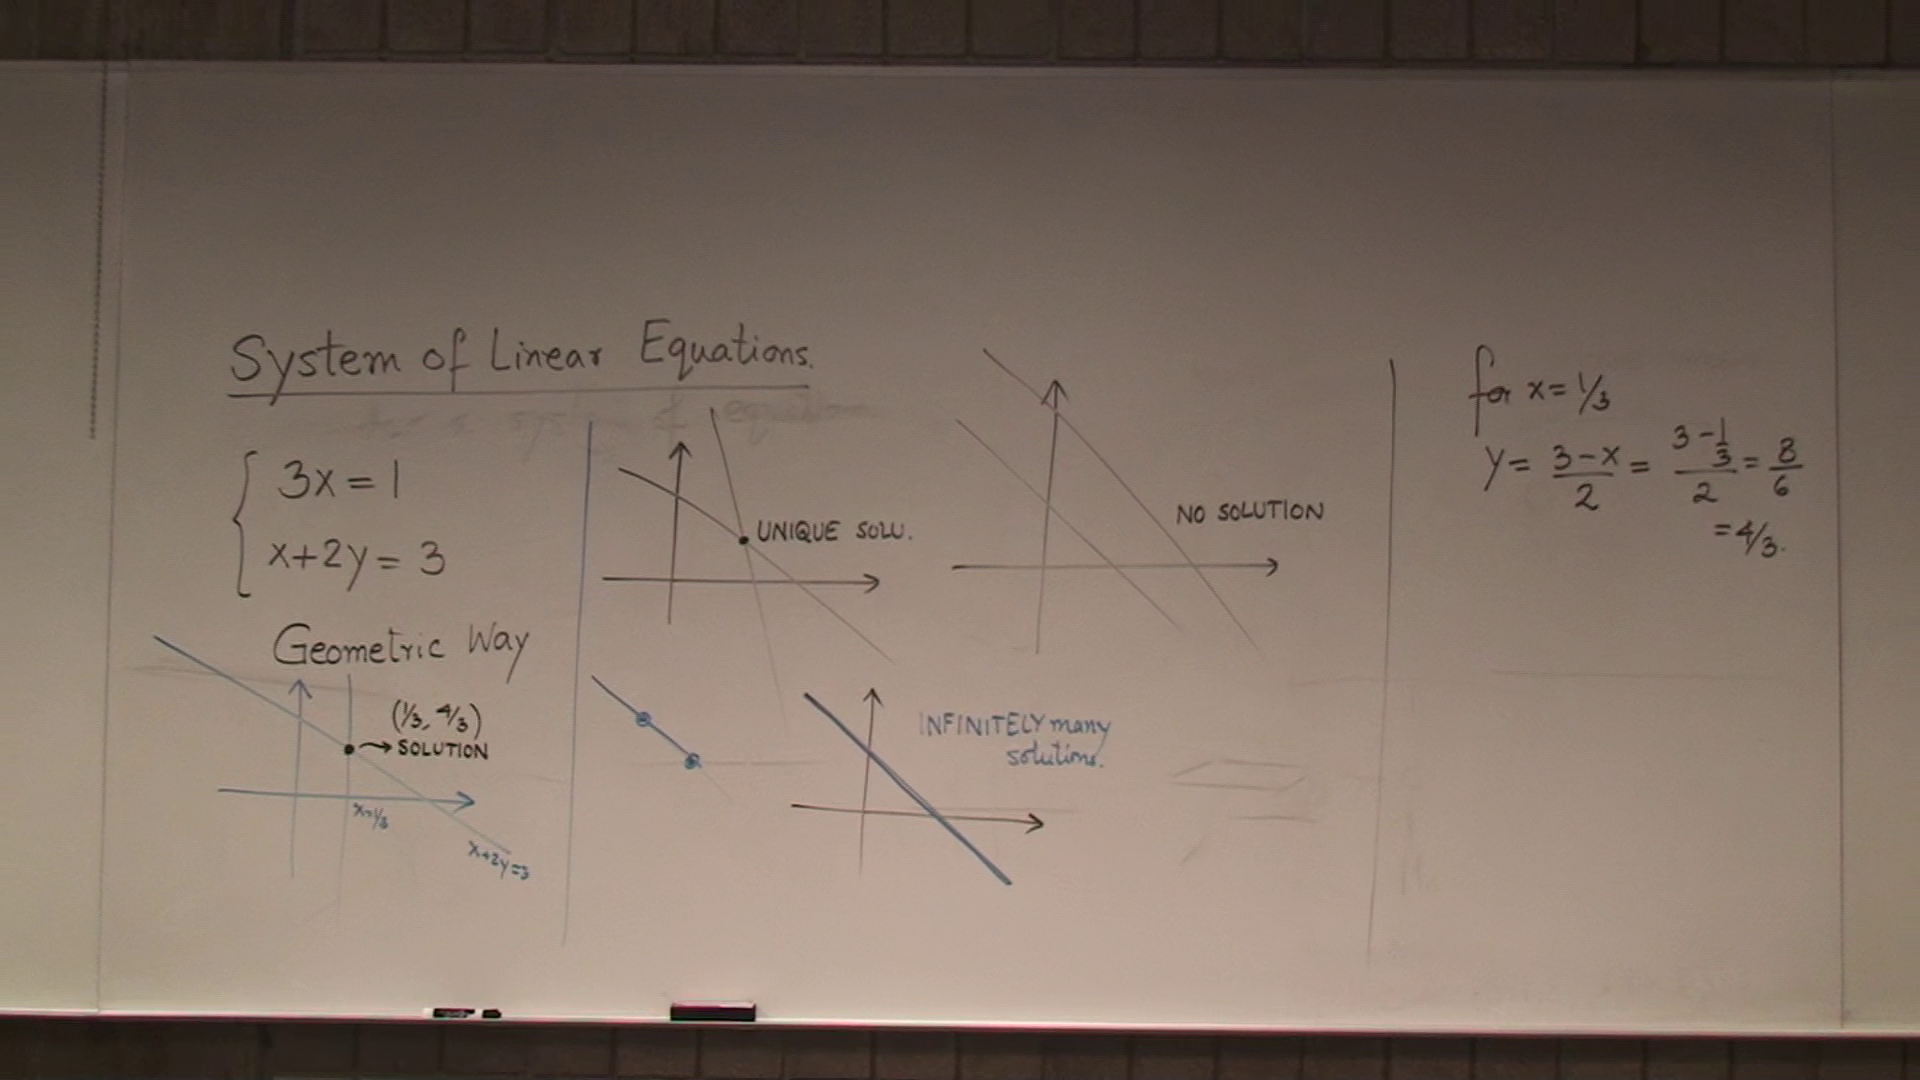 System of Linear Equations.
3x = 1
x+2y = 3
Geometric Way
(1/3, 4/3)
→ SOLUTION
x=1/3
x+2y=3
UNIQUE SOLU.
NO SOLUTION
INFINITELY many
solutions.
for x = 1/3
y = (3-x)/2 = (3-1/3)/2 = 8/6
= 4/3.